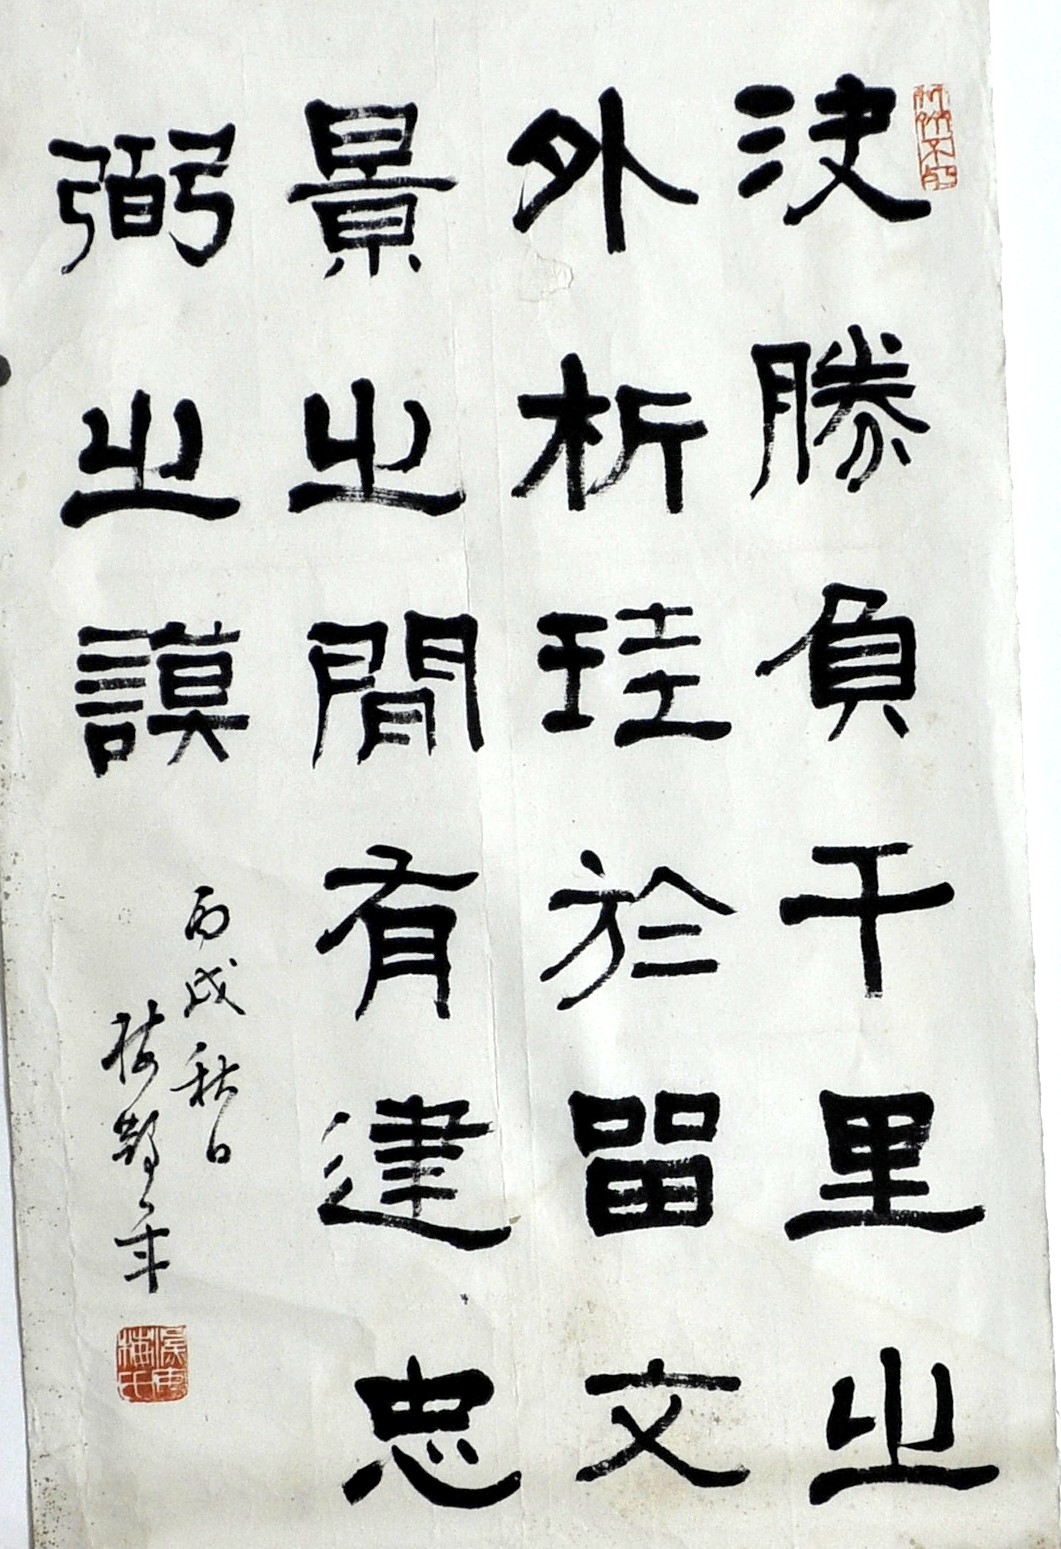 決勝負千里之
外析珪於留文
景之間有建忠
弼之謨
丙戌秋日
梅鶴年